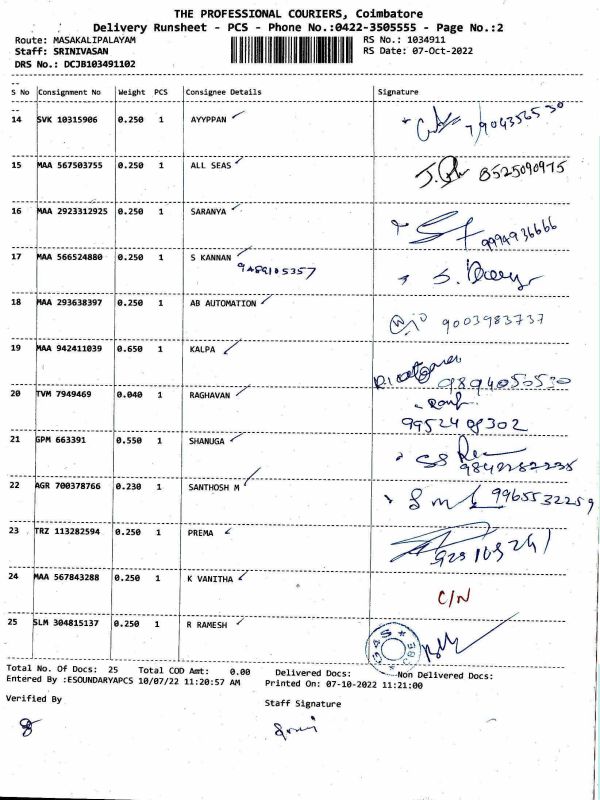 THE PROFESSIONAL COURIERS, Coimbatore
Delivery Runsheet - PCS - Phone No.:0422-3505555 - Page No.:2
Route: MASAKALIPALAYAM
Staff: SRINIVASAN
DRS No.: DCJB103491102
RS No.: 1034911
RS Date: 07-Oct-2022
S No Consignment No Weight PCS Consignee Details Signature
14 SVK 10315906 0.250 1 AYYPPAN 7904356530
15 MAA 567503755 0.250 1 ALL SEAS 8525090975
16 MAA 2923312925 0.250 1 SARANYA 9994936666
17 MAA 566524880 0.250 1 S KANNAN
9489105357
18 MAA 293638397 0.250 1 AB AUTOMATION 9003983737
19 MAA 942411039 0.650 1 KALPA 9894050530
20 TVM 7949469 0.040 1 RAGHAVAN
9952408302
21 GPM 663391 0.550 1 SHANUGA
22 AGR 700378766 0.230 1 SANTHOSH M 9965532259
23 TRZ 113282594 0.250 1 PREMA
24 MAA 567843288 0.250 1 K VANITHA C/N
25 SLM 304815137 0.250 1 R RAMESH
G4S CBE
Total No. Of Docs: 25 Total COD Amt: 0.00 Delivered Docs: Non Delivered Docs:
Entered By :ESOUNDARYAPCS 10/07/22 11:20:57 AM Printed On: 07-10-2022 11:21:00
Verified By Staff Signature